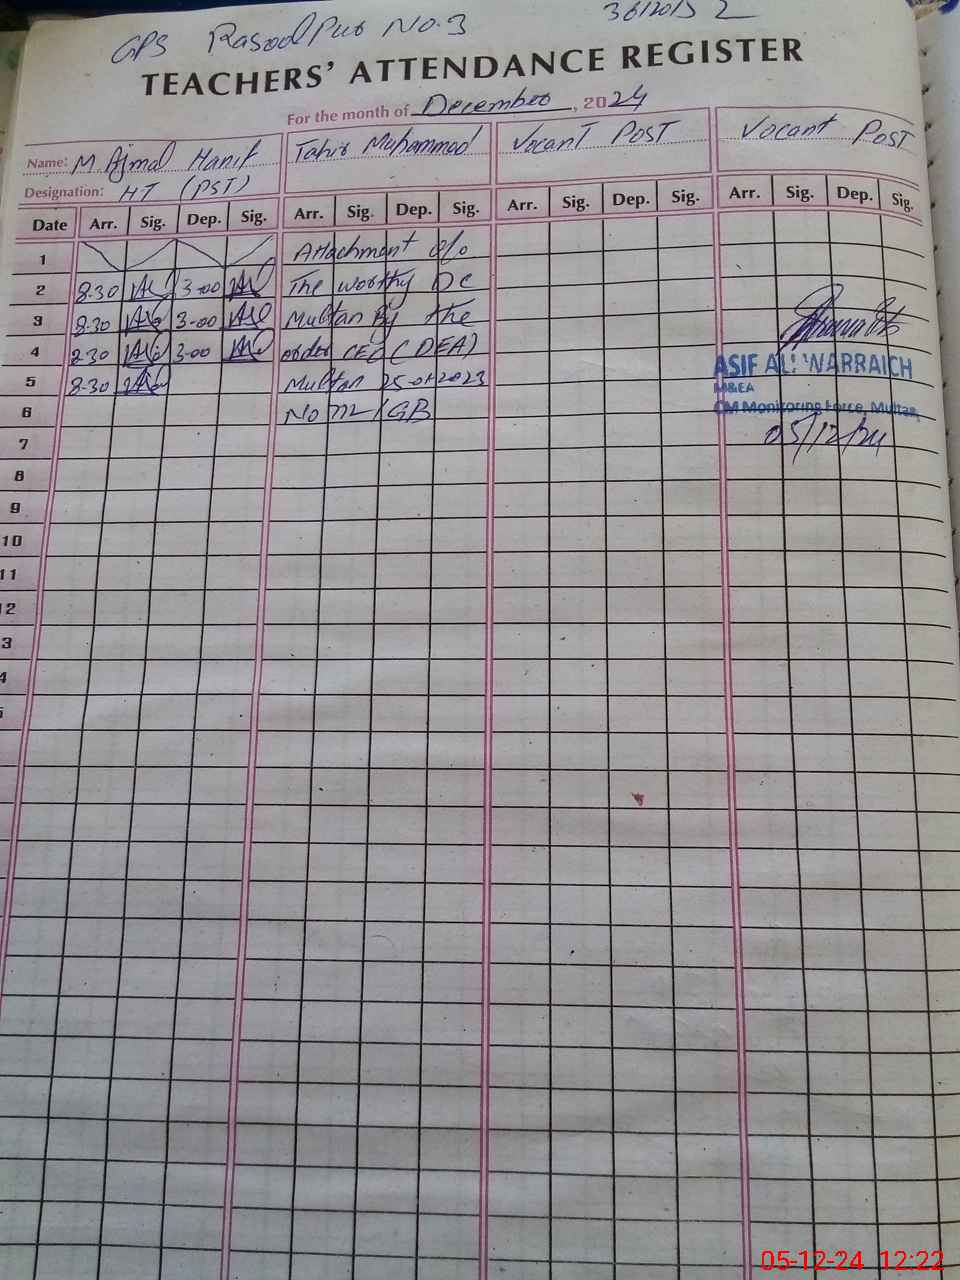 GPS Rasool Pur No.3
TEACHERS' ATTENDANCE REGISTER
For the month of December, 2024
Name: M Ajmal Hanif Tahir Muhammad Vocant Post Vocant Post
Designation: HT (PST)
Date Arr. Sig. Dep. Sig. Arr. Sig. Dep. Sig. Arr. Sig. Dep. Sig. Arr. Sig. Dep. Sig.
1 Attachment o/o
2 8-30 3-00 The worthy DC
3 8-30 3-00 Multan By the
4 8-30 3-00 order CEO (DEA)
ASIF ALI WARRAICH
5 8-30 Multan 25-01-2023
M&EA
CM Monitoring Force, Multan
6 No 772/GB
05/12/24
7
8
9
10
11
12
3
4
5
05-12-24 12:22